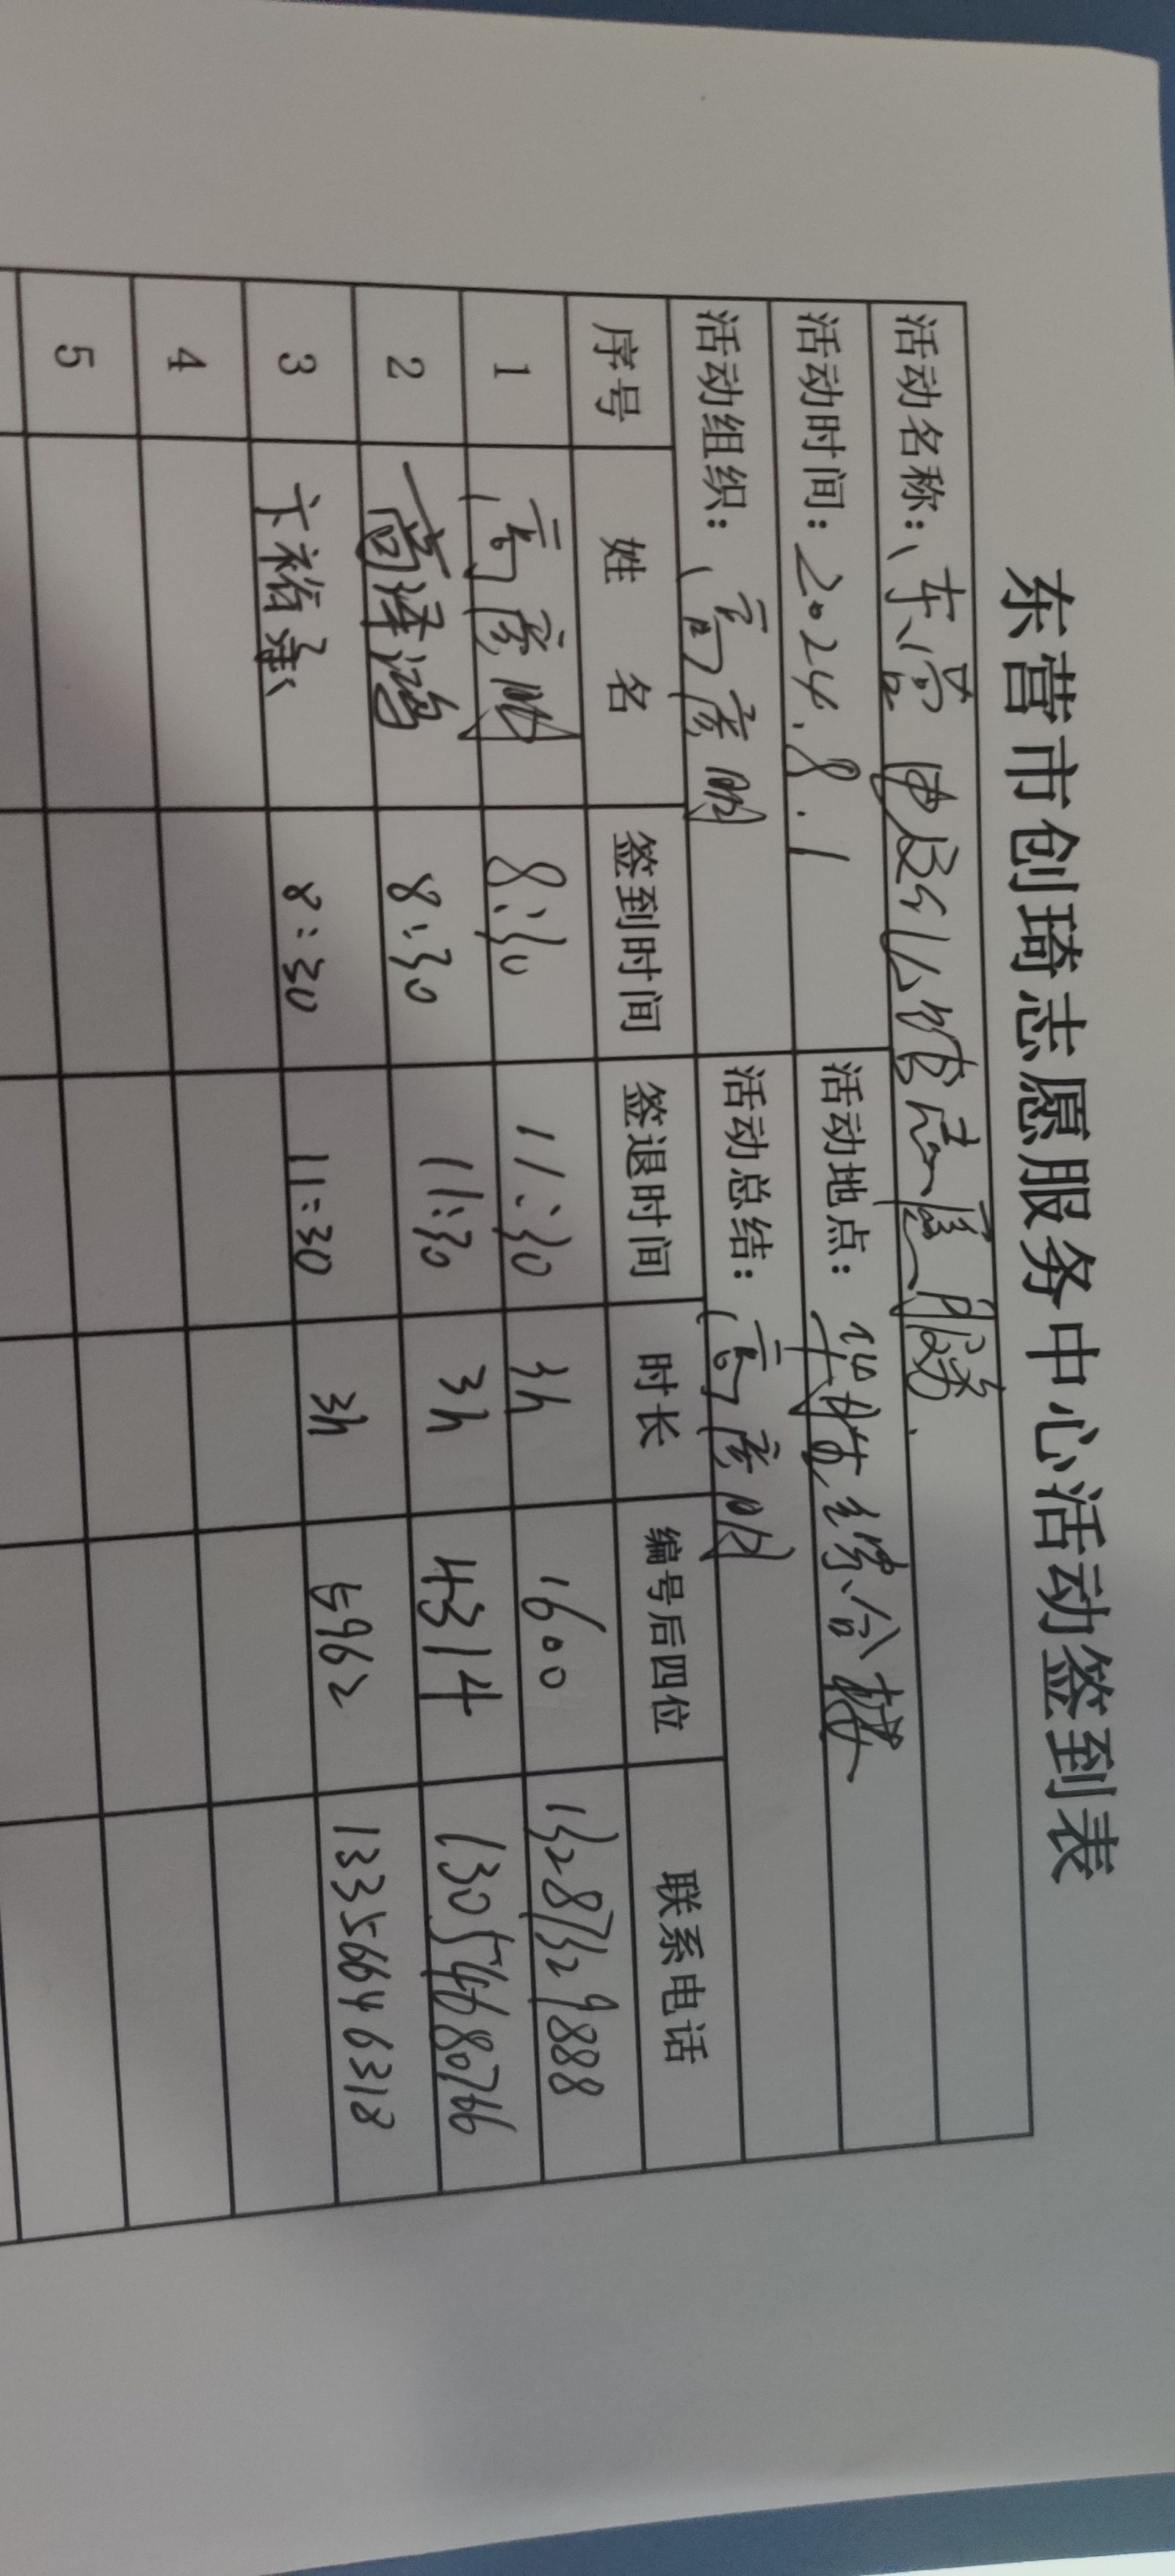 东营市创琦志愿服务中心活动签到表
活动名称：东营 志愿服务.
活动时间：2024.8.1 活动地点： 综合楼
活动组织：高彦明 活动总结：高彦明
序号 姓 名 签到时间 签退时间 时长 编号后四位 联系电话
1 高彦明 8:30 11:30 3h 1600 13287329888
2 尚泽鸿 8:30 11:30 3h 4314 13054680766
3 卞裕豪 8:30 11:30 3h 5962 13356646318
4
5